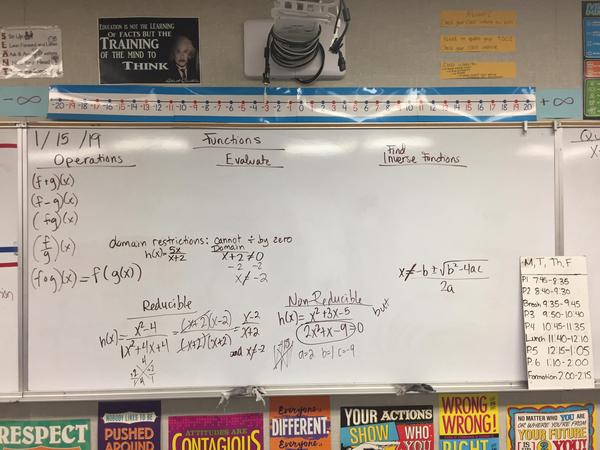 SLANT
EDUCATION IS NOT THE LEARNING
OF FACTS BUT THE
TRAINING
OF THE MIND TO
THINK
ALWAYS
-∞
-20 -19 -18 -17 -16 -15 -14 -13 -12 -11 -10 -9 -8 -7 -6 -5 -4 -3 -2 -1 0 1 2 3 4 5 6 7 8 9 10 11 12 13 14 15 16 17 18 19 20
+∞
1/15/19
Functions
Operations
Evaluate
Find
Inverse Functions
(f+g)(x)
(f-g)(x)
(fg)(x)
(f/g)(x)
(f∘g)(x) = f(g(x))
domain restrictions: cannot ÷ by zero
h(x) = 5x/x+2
Domain
x+2≠0
-2 -2
x≠-2
x≠ -b±√b²-4ac / 2a
Reducible
h(x)= x²-4 / 1x²+4x+4 = (x+2)(x-2) / (x+2)(x+2) = x-2 / x+2
and x≠-2
Non-Reducible
h(x)= x²+3x-5 / 2x²+x-9≠0
but
a=2 b=1 c=-9
M, T, Th, F
P1 7:45-8:35
P2 8:40-9:30
Break 9:35-9:45
P3 9:50-10:40
P4 10:45-11:35
Lunch 11:40-12:10
P.5 12:15-1:05
P.6 1:10-2:00
Formation 2:00-2:15
RESPECT
NOBODY LIKES TO BE
PUSHED
AROUND
ATTITUDES ARE
CONTAGIOUS
Everyone is
DIFFERENT.
Everyone
YOUR ACTIONS
SHOW WHO
YOU
WRONG IS
WRONG!
RIGHT
NO MATTER WHO YOU ARE
OR WHERE YOU'RE FROM
YOUR FUTURE
IS
YOU!